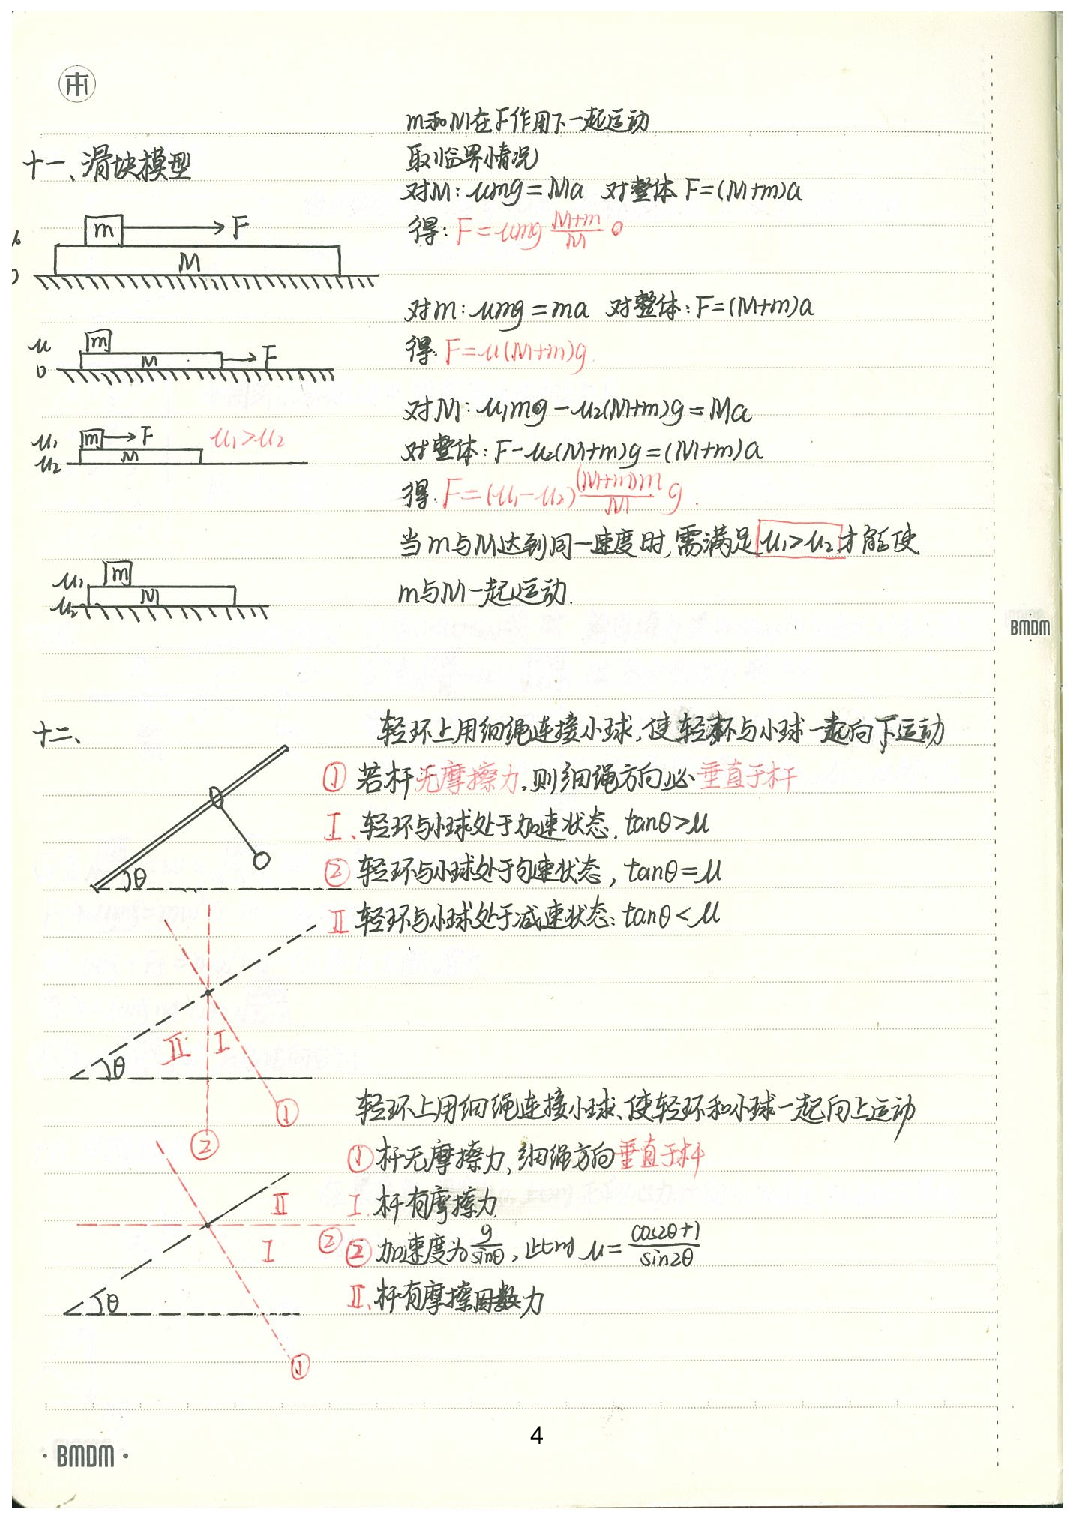 m和M在F作用下一起运动
十一、滑块模型
取临界情况
对M: μmg=Ma 对整体 F=(M+m)a
得: F=μmg (M+m)/M
m F
M
0
对m: μmg=ma 对整体: F=(M+m)a
得. F=μ(M+m)g.
μ m
M F
0
对M: μ₁mg-μ₂(M+m)g=Ma
μ₁ m F μ₁>μ₂
μ₂ M
对整体: F-μ₂(M+m)g=(M+m)a
得. F=(μ₁-μ₂) (M+m)m/M g.
当m与M达到同一速度时,需满足 μ₁>μ₂ 才能使
m与M一起运动.
μ₁ m
μ₂ M
BMDM
十二、
轻环上用细绳连接小球,使轻环与小球一起向下运动
① 若杆无摩擦力,则细绳方向必垂直于杆
Ⅰ、轻环与小球处于加速状态, tanθ>μ
② 轻环与小球处于匀速状态, tanθ=μ
Ⅱ 轻环与小球处于减速状态: tanθ<μ
θ
Ⅱ Ⅰ
θ
①
②
轻环上用细绳连接小球、使轻环和小球一起向上运动
① 杆无摩擦力,细绳方向垂直于杆
Ⅰ.杆有摩擦力
② 加速度为 g/sinθ, 此时 μ=(cos2θ+1)/sin2θ
Ⅱ、杆有摩擦力
Ⅱ
Ⅰ
②
θ
①
4
· BMDM ·